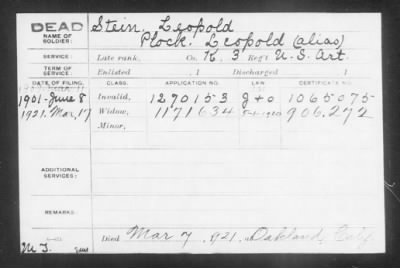 DEAD
NAME OF SOLDIER:
Stein, Leopold
Plock, Leopold (alias)
SERVICE:
Late rank, Co. K, 3 Reg't U.S. Art.
TERM OF SERVICE:
Enlisted , 1 Discharged , 1
DATE OF FILING. CLASS. APPLICATION NO. LAW. CERTIFICATE NO.
1901 June 8 Invalid, 1270153 G+O 1065075
1921. Mar. 17 Widow, 1171634 1920 906.272
Minor,
ADDITIONAL SERVICES:
REMARKS:
Died Mar 7, 1921, at Oakland, Calif